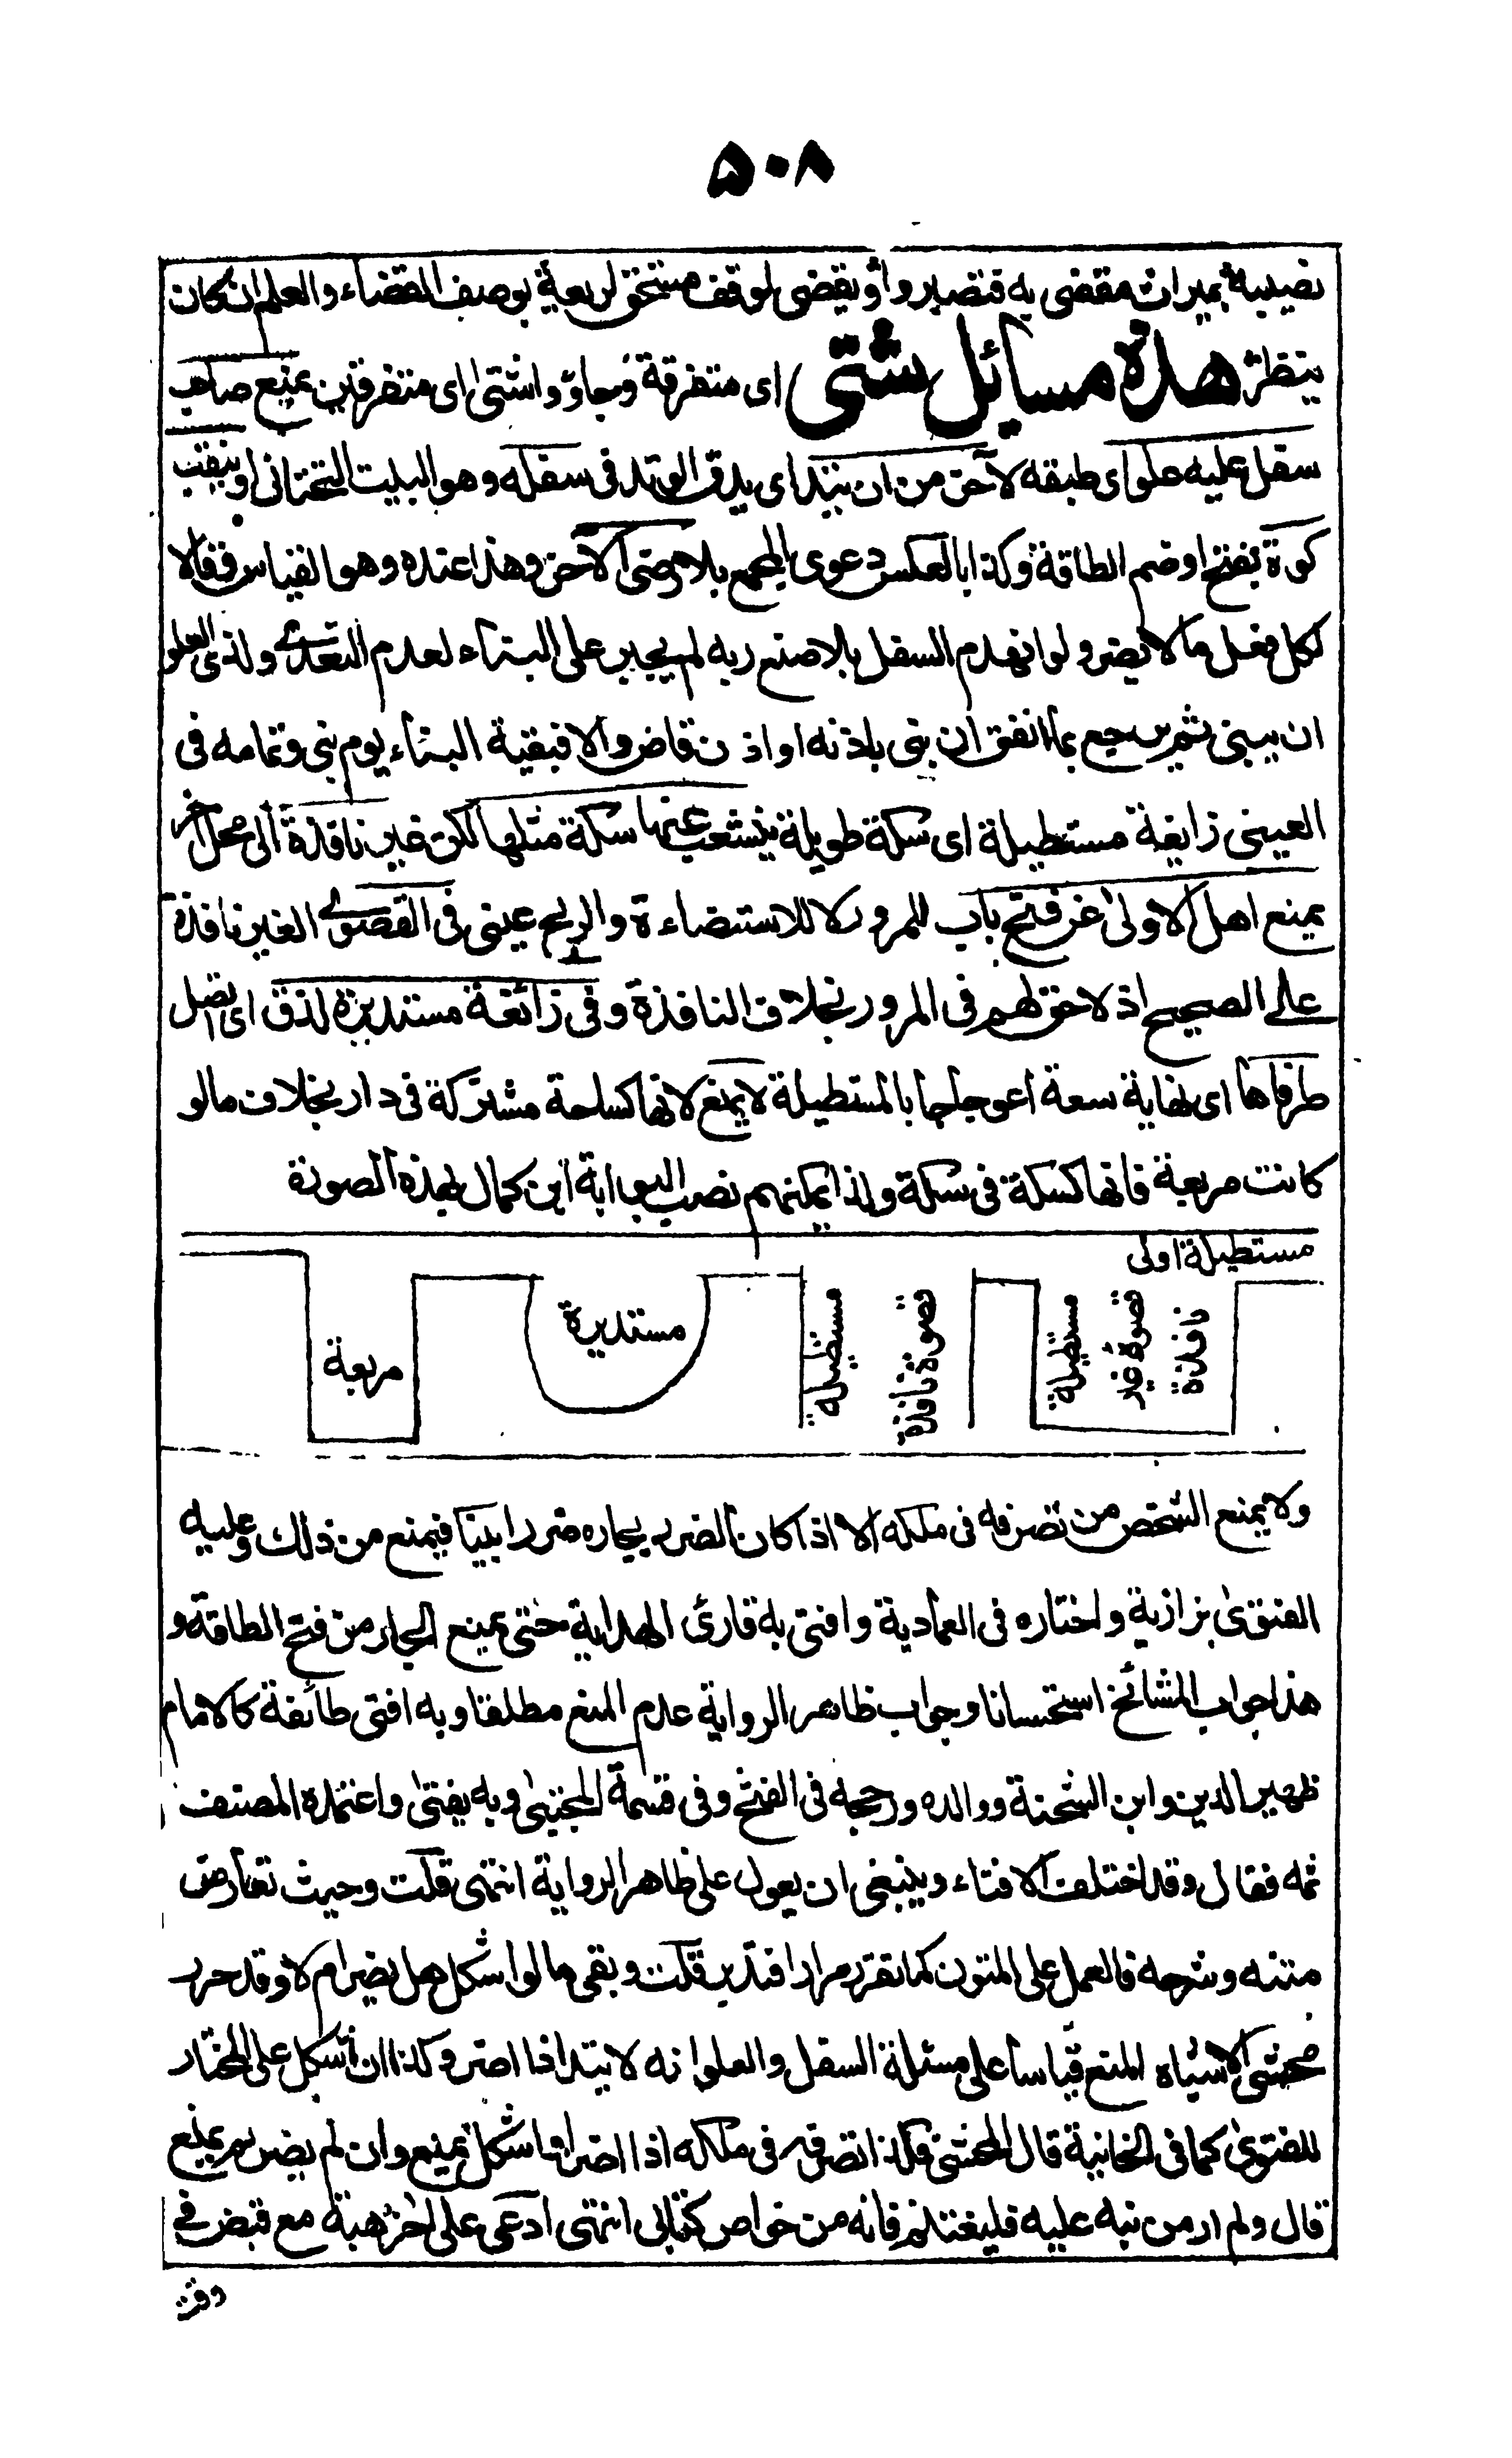 ۵۰۸
نصيبه بميراث مقضى به فتصير واو يقضى لوقف مستحق لريعه بوصف القضاء والعلم ان كان
ينظر هذه مسائل شتى اى متفرقة وجاؤ واشتى اى متفرقين يمنع صاحب
سفل عليه علو اى طبقه لآخر من ان يتد اى يدق الوتد فى سفله وهو البيت التحتانى او ينقب
كوة بفتح او ضم الطاقة وكذا بالعكس دعوى المجمع بلا رضى الآخر وهذا عنده وهو القياس وقالا
لكل فعل ما لا يضر ولو انهدم السفل بلا صنع ربه لم يجبر على البناء لعدم التعدى ولذى العلو
ان يبنى ثم يرجع بما انفق ان بنى باذنه او اذن قاض والا فبقيمة البناء يوم بنى وتمامه فى
العينى زائغة مستطيلة اى سكة طويلة ينشعب عنها سكة مثلها لكن غير نافذة الى محل آخر
يمنع اهل الاولى عن فتح باب للمرور لا للاستضاءة والريح عينى فى القصوى الغير نافذة
على الصحيح اذ لا حق لهم فى المرور بخلاف النافذة وفى زائغة مستديرة لزق اى اتصل
طرفاها اى نهاية سعة اعوجاجها بالمستطيلة لا يمنع لانها كساحة مشتركة فى دار بخلاف ما لو
كانت مربعة فانها كسكة فى سكة ولذا يمكنهم نصب البوابة ابن كمال بهذه الصورة
مستطيلة اولى
نافذة
قصوة غير
مستطيلة
قصوة نافذة
مستطيلة
مستديرة
مربعة
ولا يمنع الشخص من تصرفه فى ملكه الا اذا كان الضرر بجاره ضررا بينا فيمنع من ذلك وعليه
الفتوى بزازية واختاره فى العمادية وافتى به قارئ الهداية حتى يمنع الجار من فتح الطاقة و
هذا جواب المشائخ استحسانا وجواب ظاهر الرواية عدم المنع مطلقا وبه افتى طائفة كالامام
ظهير الدين وابن الشحنة ووالده ورجحه فى الفتح وفى قسمة المجتبى وبه يفتى واعتمده المصنف
ثمه فقال وقد اختلف الافتاء وينبغى ان يعول على ظاهر الرواية انتهى قلت وحيث تعارض
متنه وشرحه فالعمل على المتون كما تقرر مرارا فتدبر قلت وبقى ما لو اشكل هل يضر ام لا وقد حرر
محشى الاشباه المنع قياسا على مسئلة السفل والعلو انه لا يتد اذا اضر وكذا ان اشكل على المختار
للفتوى كما فى الخانية قال المحشى فكذا تصرفه فى ملكه اذا اضر او اشكل يمنع وان لم يضر لم يمنع
قال ولم ار من نبه عليه فليغتنم فانه من خواص كتابى انتهى ادعى على آخر هبة مع قبض فى
وقت